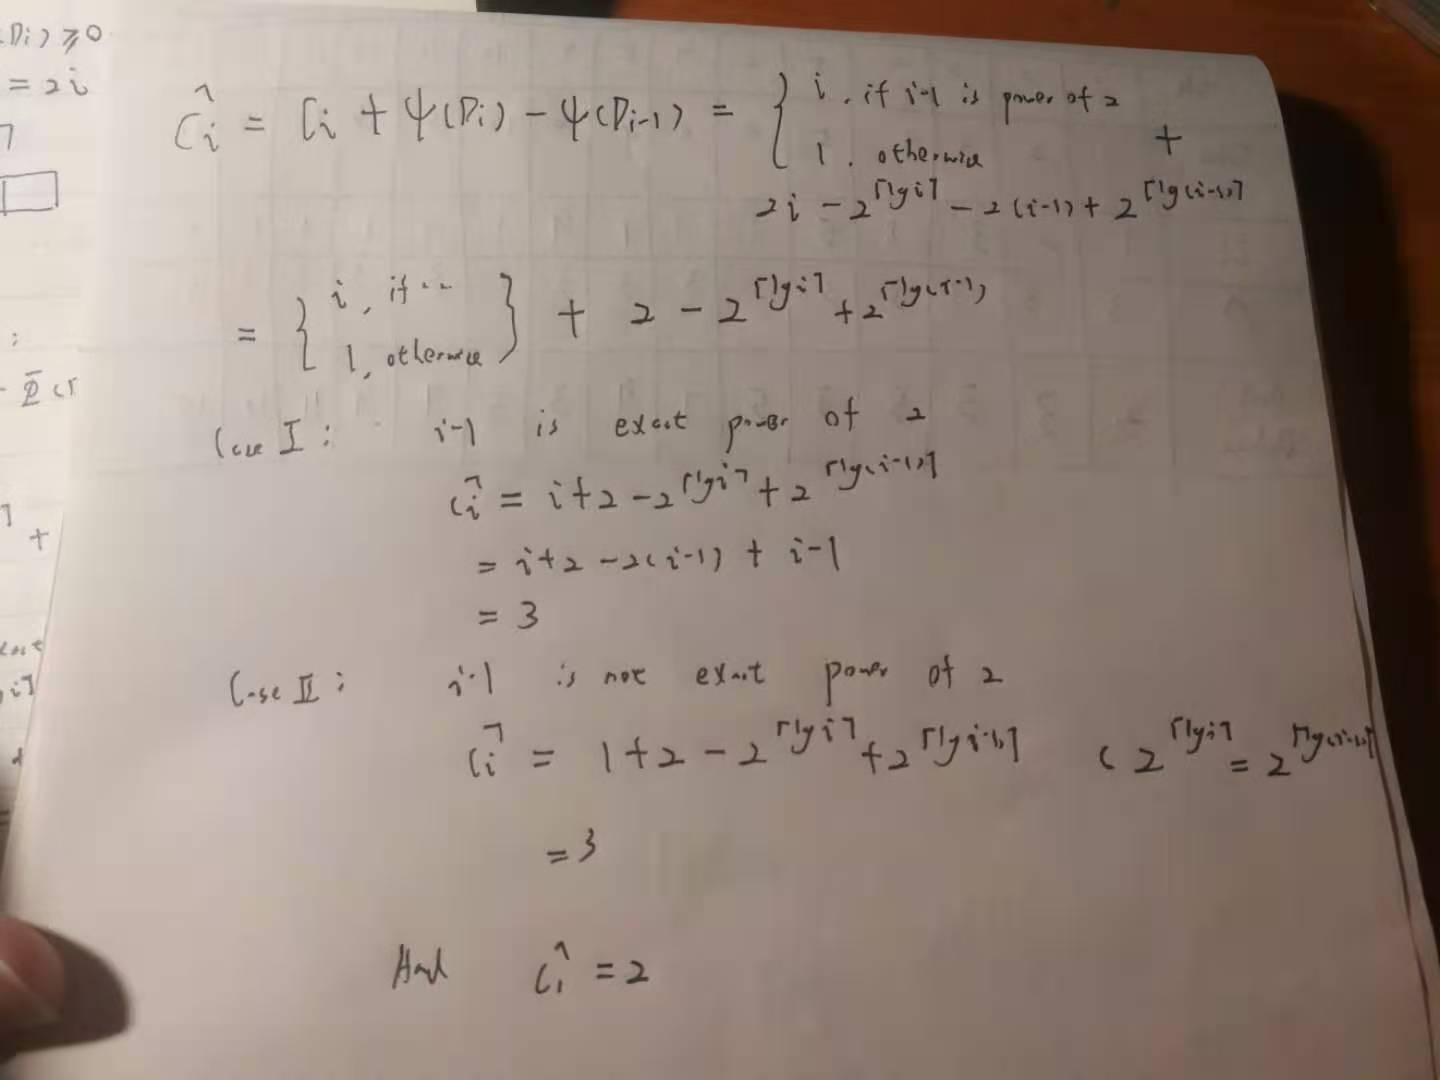 Di) ≥ 0
= 2i
ĉi = Ci + ψ(Di) - ψ(Di-1) = { i, if i-1 is power of 2
1, otherwise +
2i - 2^⌈lg i⌉ - 2(i-1) + 2^⌈lg(i-1)⌉
= { i, if ..
1, otherwise } + 2 - 2^⌈lg i⌉ + 2^⌈lg(i-1)
Case I : i-1 is exact power of 2
ĉi = i+2 - 2^⌈lg i⌉ + 2^⌈lg(i-1)⌉
= i+2 - 2(i-1) + i-1
= 3
Case II : i-1 is not exact power of 2
ĉi = 1+2 - 2^⌈lg i⌉ + 2^⌈lg(i-1)⌉ ( 2^⌈lg i⌉ = 2^⌈lg(i-1)⌉
= 3
And ĉ1 = 2